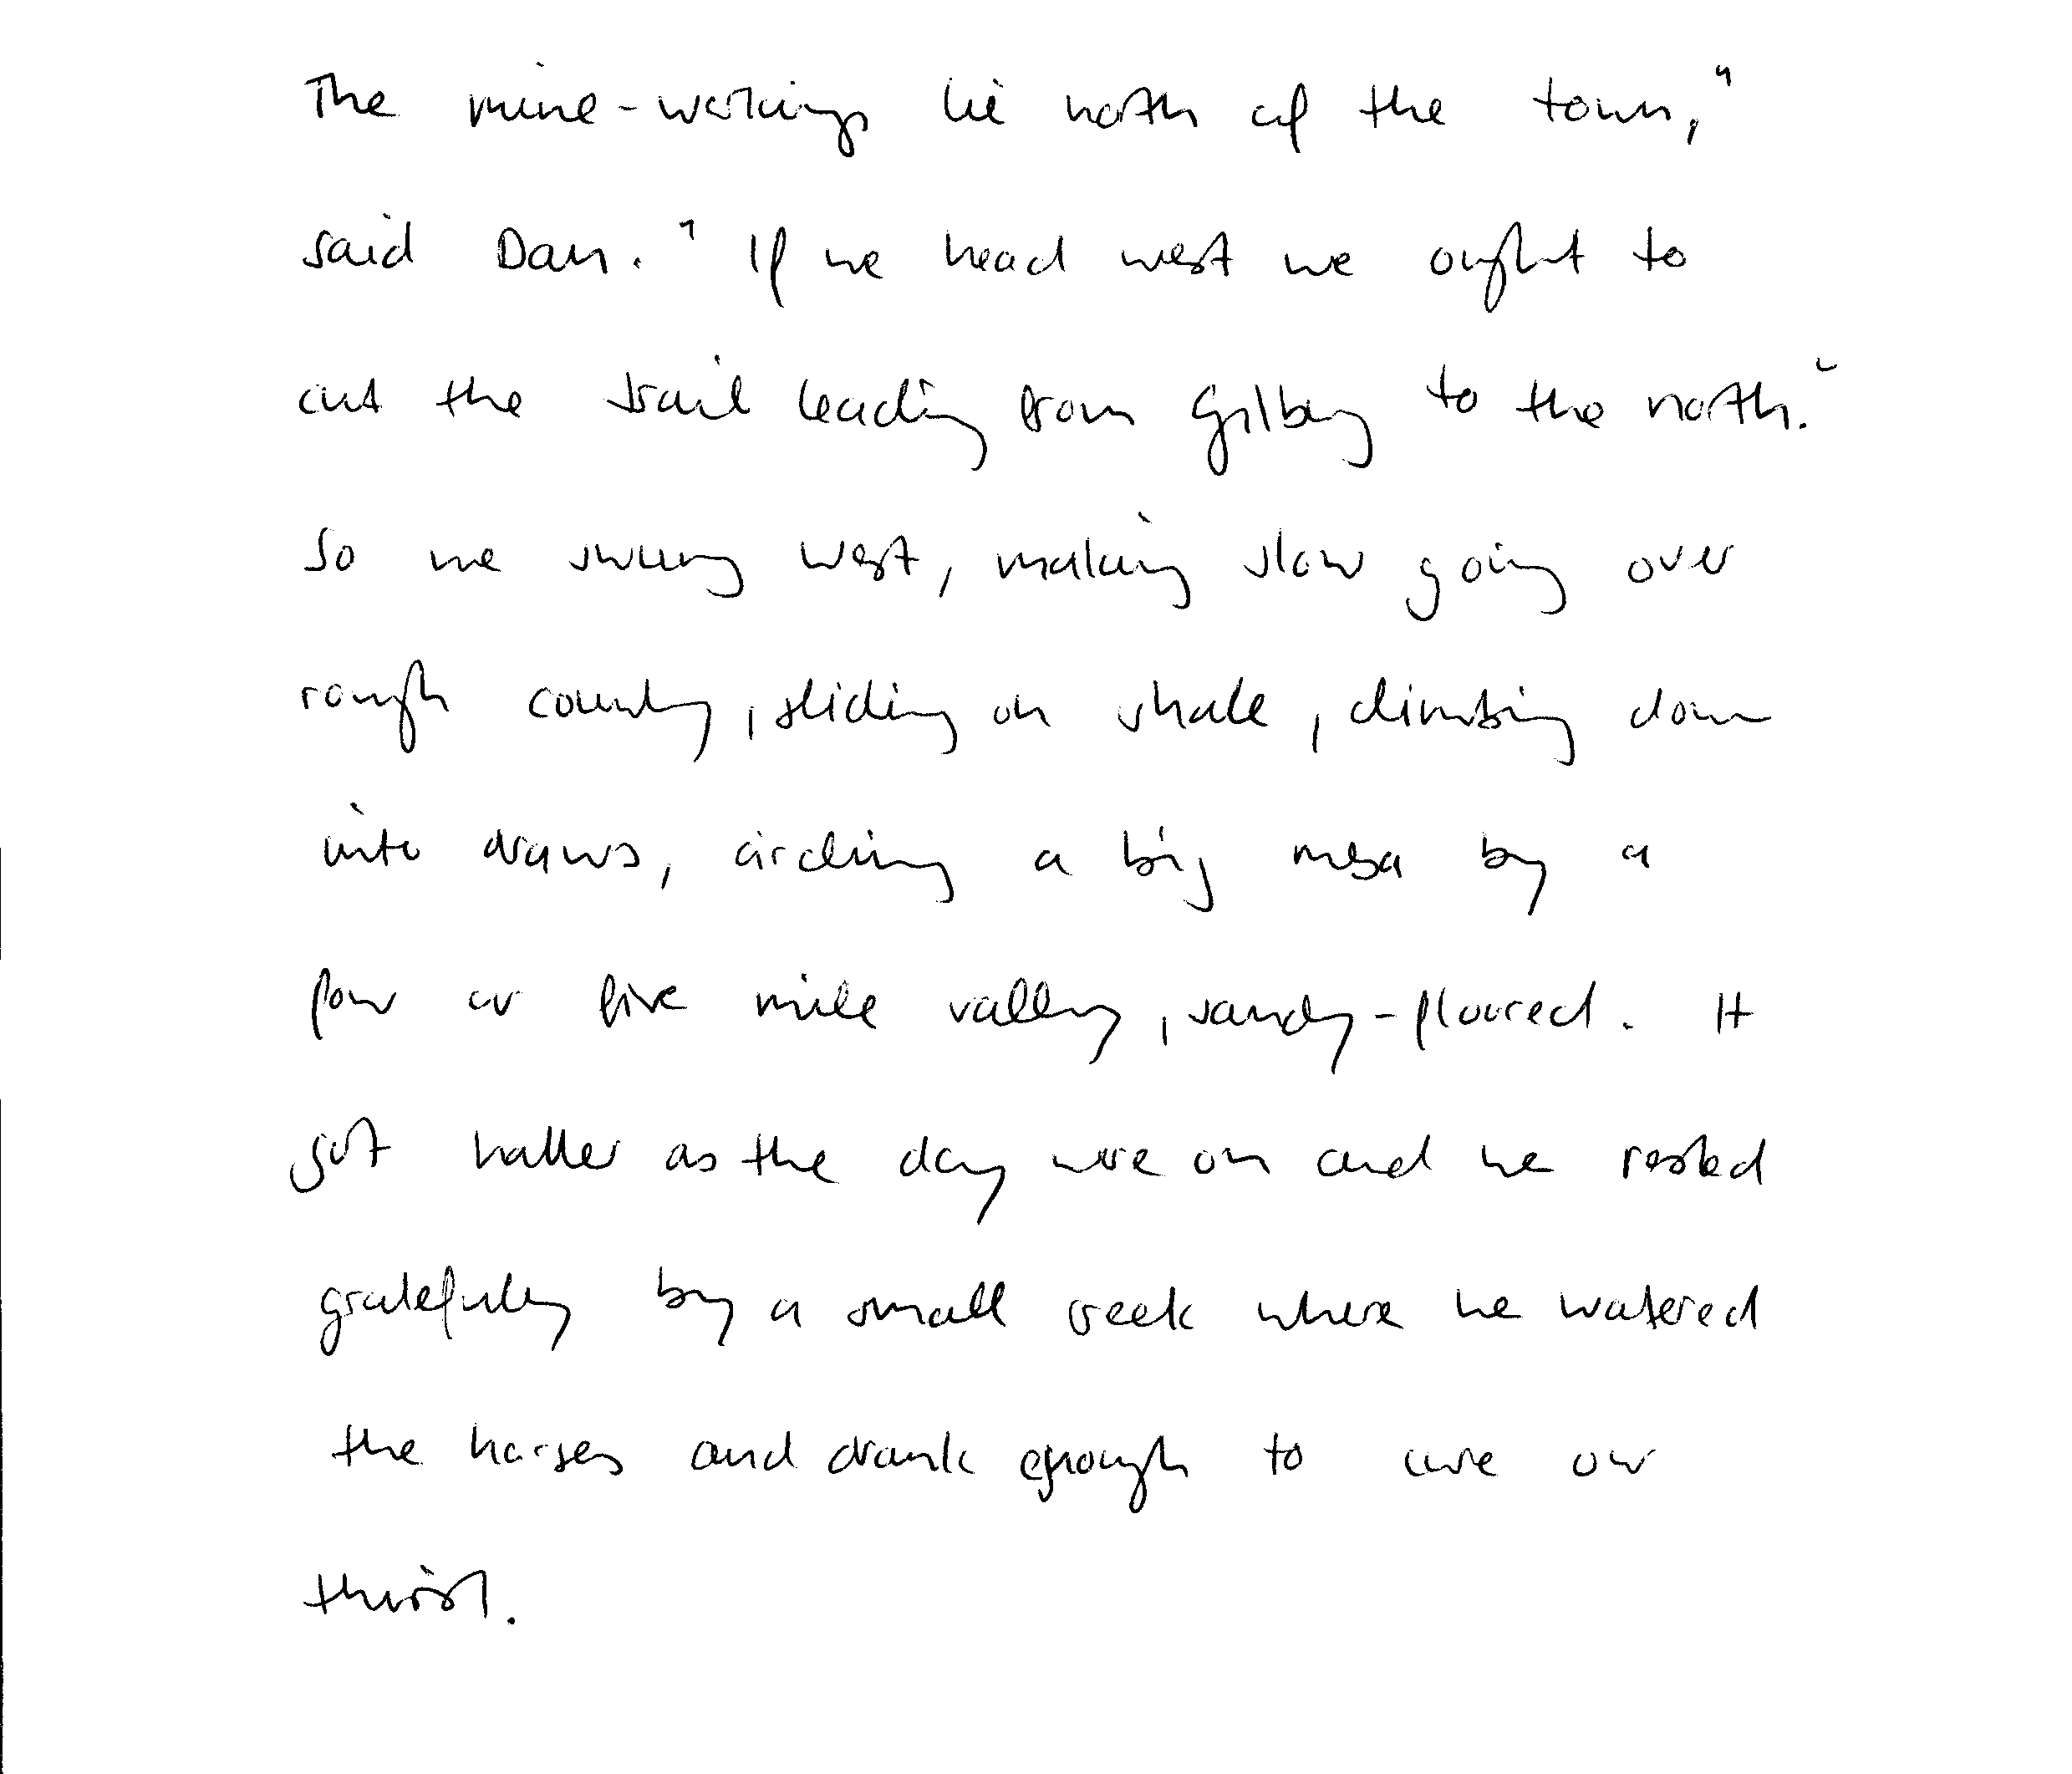 The mine-workings lie north of the town,"
said Dan. "If we head west we ought to
cut the trail leading from Gilbey to the north."
So we swung west, making slow going over
rough country, sliding on shale, climbing down
into draws, circling a big mesa by a
four or five mile valley, sandy-floored. It
got hotter as the day wore on and we rested
gratefully by a small creek where we watered
the horses and drank enough to cure our
thirst.